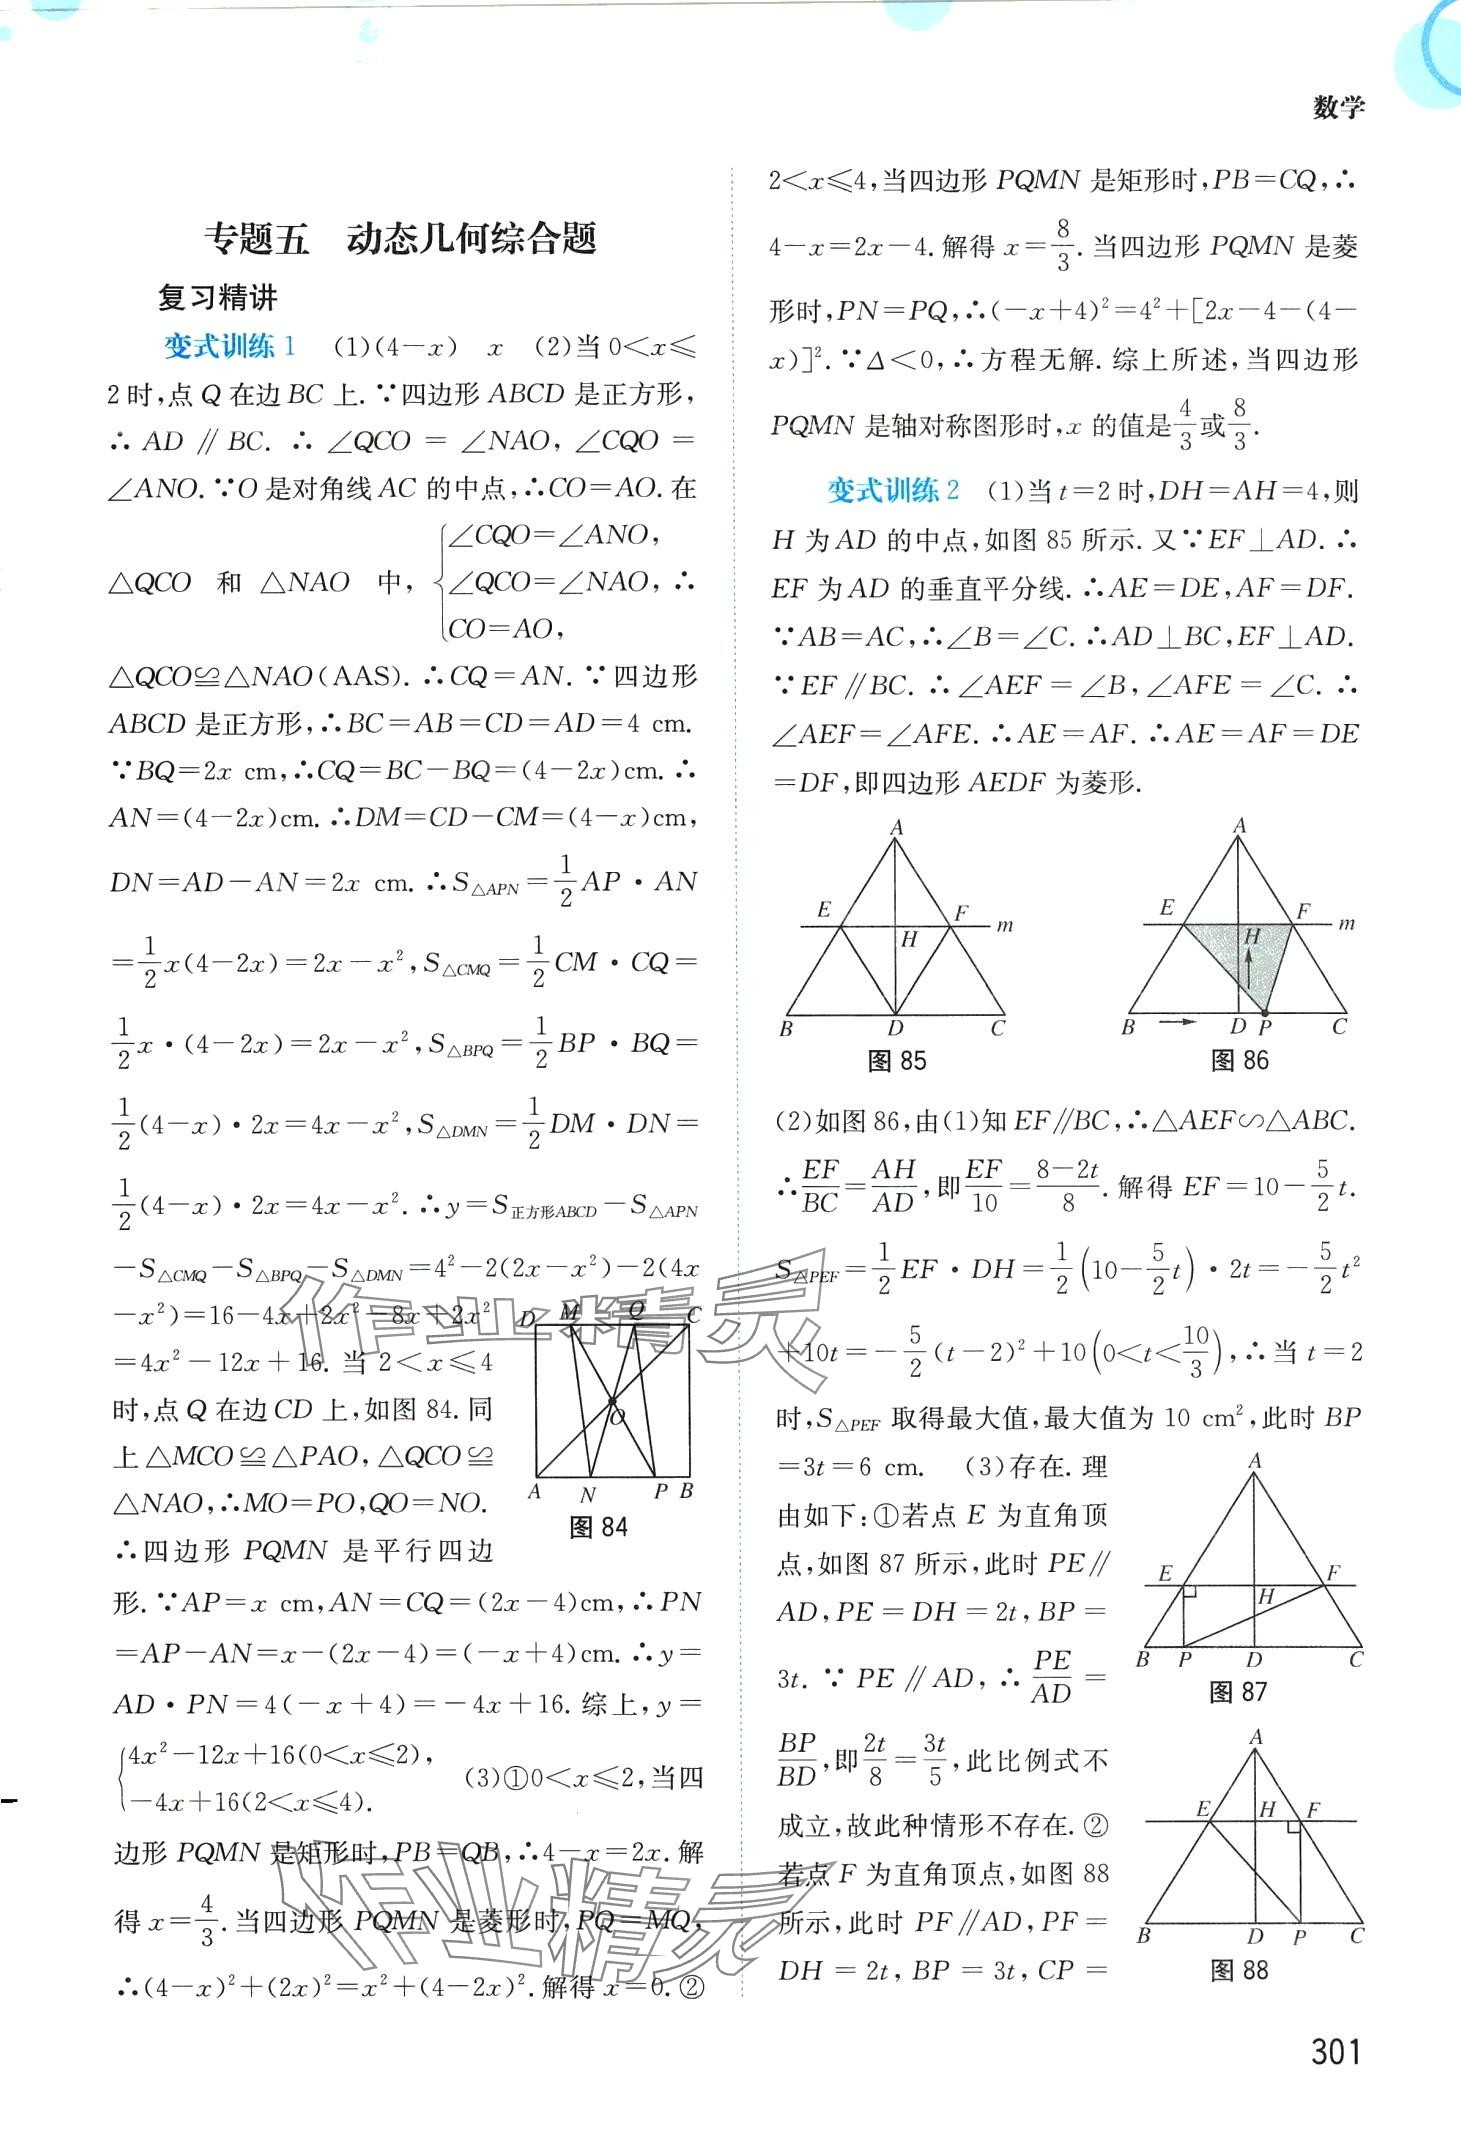 数学
专题五 动态几何综合题
复习精讲
变式训练1 (1)(4-x) x (2)当0<x≤
2时,点Q在边BC上.∵四边形ABCD是正方形,
∴AD∥BC.∴∠QCO=∠NAO,∠CQO=
∠ANO.∵O是对角线AC的中点,∴CO=AO.在
△QCO和△NAO中,{∠CQO=∠ANO,
∠QCO=∠NAO,∴
CO=AO,
△QCO≌△NAO(AAS).∴CQ=AN.∵四边形
ABCD是正方形,∴BC=AB=CD=AD=4 cm.
∵BQ=2x cm,∴CQ=BC-BQ=(4-2x)cm.∴
AN=(4-2x)cm.∴DM=CD-CM=(4-x)cm,
DN=AD-AN=2x cm.∴S△APN=1/2AP·AN
=1/2x(4-2x)=2x-x²,S△CMQ=1/2CM·CQ=
1/2x·(4-2x)=2x-x²,S△BPQ=1/2BP·BQ=
1/2(4-x)·2x=4x-x²,S△DMN=1/2DM·DN=
1/2(4-x)·2x=4x-x².∴y=S正方形ABCD-S△APN
-S△CMQ-S△BPQ-S△DMN=4²-2(2x-x²)-2(4x
-x²)=16-4x+2x²-8x+2x²
=4x²-12x+16.当2<x≤4
时,点Q在边CD上,如图84.同
上△MCO≌△PAO,△QCO≌
△NAO,∴MO=PO,QO=NO.
∴四边形PQMN是平行四边
形.∵AP=x cm,AN=CQ=(2x-4)cm,∴PN
=AP-AN=x-(2x-4)=(-x+4)cm.∴y=
AD·PN=4(-x+4)=-4x+16.综上,y=
{4x²-12x+16(0<x≤2),
-4x+16(2<x≤4).
(3)①0<x≤2,当四
边形PQMN是矩形时,PB=QB,∴4-x=2x.解
得x=4/3.当四边形PQMN是菱形时,PQ=MQ,
∴(4-x)²+(2x)²=x²+(4-2x)².解得x=0.②
D M Q C
O
A N P B
图84
2<x≤4,当四边形PQMN是矩形时,PB=CQ,∴
4-x=2x-4.解得x=8/3.当四边形PQMN是菱
形时,PN=PQ,∴(-x+4)²=4²+[2x-4-(4-
x)]².∵Δ<0,∴方程无解.综上所述,当四边形
PQMN是轴对称图形时,x的值是4/3或8/3.
变式训练2 (1)当t=2时,DH=AH=4,则
H为AD的中点,如图85所示.又∵EF⊥AD.∴
EF为AD的垂直平分线.∴AE=DE,AF=DF.
∵AB=AC,∴∠B=∠C.∴AD⊥BC,EF⊥AD.
∵EF∥BC.∴∠AEF=∠B,∠AFE=∠C.∴
∠AEF=∠AFE.∴AE=AF.∴AE=AF=DE
=DF,即四边形AEDF为菱形.
A
E F m
H
B D C
图85
A
E F m
H
B D P C
图86
(2)如图86,由(1)知EF∥BC,∴△AEF∽△ABC.
∴EF/BC=AH/AD,即EF/10=(8-2t)/8.解得EF=10-5/2t.
S△PEF=1/2EF·DH=1/2(10-5/2t)·2t=-5/2t²
+10t=-5/2(t-2)²+10(0<t<10/3),∴当t=2
时,S△PEF取得最大值,最大值为10 cm²,此时BP
=3t=6 cm. (3)存在.理
由如下:①若点E为直角顶
点,如图87所示,此时PE∥
AD,PE=DH=2t,BP=
3t.∵PE∥AD,∴PE/AD=
BP/BD,即2t/8=3t/5,此比例式不
成立,故此种情形不存在.②
若点F为直角顶点,如图88
所示,此时PF∥AD,PF=
DH=2t,BP=3t,CP=
A
E F
H
B P D C
图87
A
E H F
B D P C
图88
作业精灵
作业精灵
301